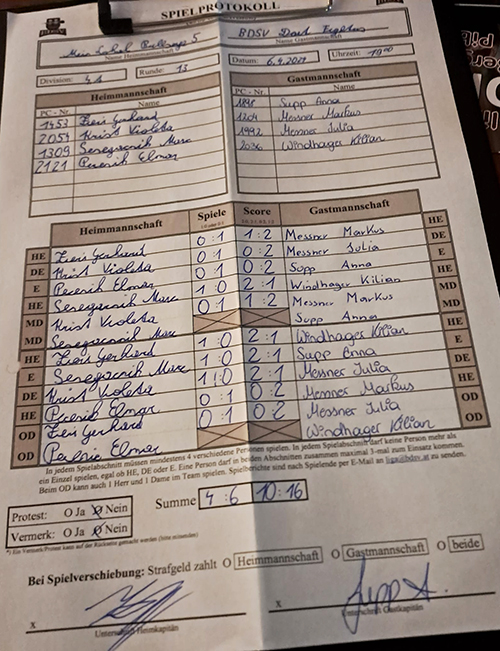 SPIELPROTOKOLL
Mein Lokal 5
Name Heimmannschaft
BDSV Dart
Name Gastmannschaft
Division: 4A
Runde: 13
Datum: 6.4.2024
Uhrzeit: 19:00
Heimmannschaft
Gastmannschaft
PC - Nr. Name
PC - Nr. Name
1453 Gerhard
1848 Supp Anna
2054 Krist Violeta
1204 Messner Markus
1309 Senegacnik Marc
1992 Messner Julia
2121 Elmar
2036 Windhager Kilian
Heimmannschaft Spiele Score Gastmannschaft
HE Gerhard 0:1 1:2 Messner Markus HE
DE Krist Violeta 0:1 0:2 Messner Julia DE
E Elmar 0:1 0:2 Supp Anna E
HE Senegacnik Marc 1:0 2:1 Windhager Kilian HE
MD Krist Violeta 0:1 1:2 Messner Markus MD
MD Senegacnik Marc Supp Anna MD
HE Gerhard 1:0 2:1 Windhager Kilian HE
E Senegacnik Marc 1:0 2:1 Supp Anna E
DE Krist Violeta 1:0 2:1 Messner Julia DE
HE Elmar 0:1 0:2 Messner Markus HE
OD Gerhard 0:1 0:2 Messner Julia OD
OD Elmar Windhager Kilian OD
In jedem Spielabschnitt müssen mindestens 4 verschiedene Personen spielen. In jedem Spielabschnitt darf keine Person mehr als
ein Einzel spielen, egal ob HE, DE oder E. Eine Person darf in beiden Abschnitten zusammen maximal 3-mal zum Einsatz kommen.
Beim OD kann auch 1 Herr und 1 Dame im Team spielen. Spielberichte sind nach Spielende per E-Mail an liga@bdsv.at zu senden.
Protest: O Ja O Nein
Summe 4:6 10:16
Vermerk: O Ja O Nein
*) Ein Vermerk/Protest kann auf der Rückseite gemacht werden (bitte ankreuzen)
Bei Spielverschiebung: Strafgeld zahlt O Heimmannschaft O Gastmannschaft O beide
x
x Supp A.
Unterschrift Heimkapitän
Unterschrift Gastkapitän